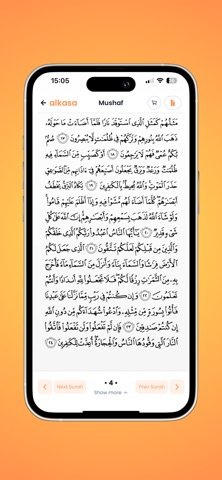 15:05
alkasa
Mushaf
مَثَلُهُمْ كَمَثَلِ ٱلَّذِى ٱسْتَوْقَدَ نَارًا فَلَمَّآ أَضَآءَتْ مَا حَوْلَهُۥ
ذَهَبَ ٱللَّهُ بِنُورِهِمْ وَتَرَكَهُمْ فِى ظُلُمَٰتٍ لَّا يُبْصِرُونَ ١٧ صُمٌّۢ
بُكْمٌ عُمْىٌ فَهُمْ لَا يَرْجِعُونَ ١٨ أَوْ كَصَيِّبٍ مِّنَ ٱلسَّمَآءِ فِيهِ
ظُلُمَٰتٌ وَرَعْدٌ وَبَرْقٌ يَجْعَلُونَ أَصَٰبِعَهُمْ فِىٓ ءَاذَانِهِم مِّنَ ٱلصَّوَٰعِقِ
حَذَرَ ٱلْمَوْتِ وَٱللَّهُ مُحِيطٌۢ بِٱلْكَٰفِرِينَ ١٩ يَكَادُ ٱلْبَرْقُ يَخْطَفُ
أَبْصَٰرَهُمْ كُلَّمَآ أَضَآءَ لَهُم مَّشَوْا۟ فِيهِ وَإِذَآ أَظْلَمَ عَلَيْهِمْ قَامُوا۟
وَلَوْ شَآءَ ٱللَّهُ لَذَهَبَ بِسَمْعِهِمْ وَأَبْصَٰرِهِمْ إِنَّ ٱللَّهَ عَلَىٰ كُلِّ
شَىْءٍ قَدِيرٌ ٢٠ يَٰٓأَيُّهَا ٱلنَّاسُ ٱعْبُدُوا۟ رَبَّكُمُ ٱلَّذِى خَلَقَكُمْ
وَٱلَّذِينَ مِن قَبْلِكُمْ لَعَلَّكُمْ تَتَّقُونَ ٢١ ٱلَّذِى جَعَلَ لَكُمُ
ٱلْأَرْضَ فِرَٰشًا وَٱلسَّمَآءَ بِنَآءً وَأَنزَلَ مِنَ ٱلسَّمَآءِ مَآءً فَأَخْرَجَ
بِهِۦ مِنَ ٱلثَّمَرَٰتِ رِزْقًا لَّكُمْ فَلَا تَجْعَلُوا۟ لِلَّهِ أَندَادًا وَأَنتُمْ
تَعْلَمُونَ ٢٢ وَإِن كُنتُمْ فِى رَيْبٍ مِّمَّا نَزَّلْنَا عَلَىٰ عَبْدِنَا
فَأْتُوا۟ بِسُورَةٍ مِّن مِّثْلِهِۦ وَٱدْعُوا۟ شُهَدَآءَكُم مِّن دُونِ ٱللَّهِ
إِن كُنتُمْ صَٰدِقِينَ ٢٣ فَإِن لَّمْ تَفْعَلُوا۟ وَلَن تَفْعَلُوا۟ فَٱتَّقُوا۟
ٱلنَّارَ ٱلَّتِى وَقُودُهَا ٱلنَّاسُ وَٱلْحِجَارَةُ أُعِدَّتْ لِلْكَٰفِرِينَ ٢٤
Next Surah
• 4 •
Prev Surah
Show more